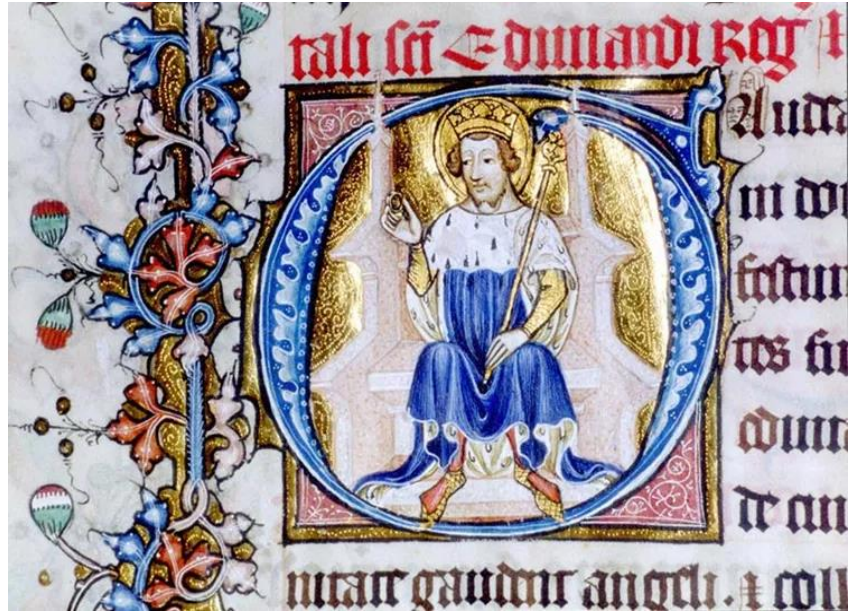 tali scī Edwardi Reg
Aude
in do
festum
tes su
edwa
de cui
nitate gaudent angeli. ⁊ coll